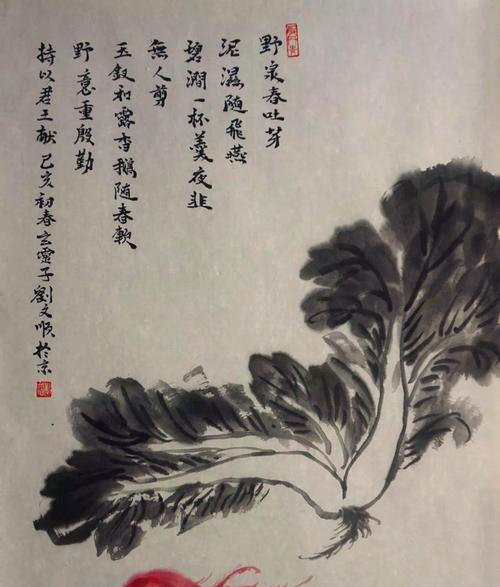 野泉春吐芽
泥濕隨飛燕
碧澗一杯羹夜韭
無人剪
玉釵和露香鵝隨春軟
野意重殷勤
持以君王献 己亥初春玄靈子劉文順於京